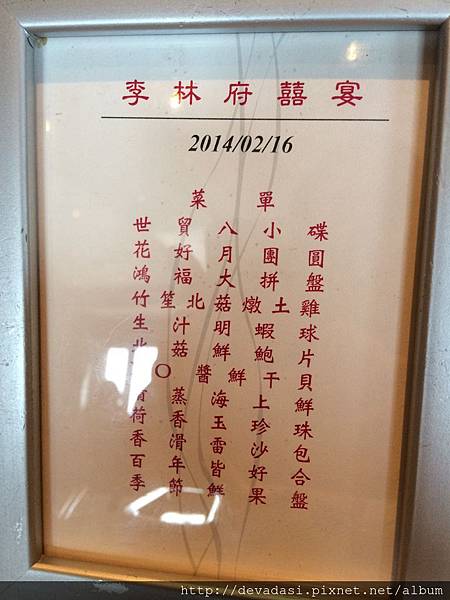 李林府囍宴
2014/02/16
菜單
世貿八小碟
花好月團圓
鴻福大拼盤
竹笙北菇燉土雞
生汁明蝦球
北菇鮮鮑片
O醬鮮干貝
蒸海上鮮
荷香玉珍珠
香滑雷沙包
百年皆好合
季節鮮果盤
http://devadasi.pixnet.net/album